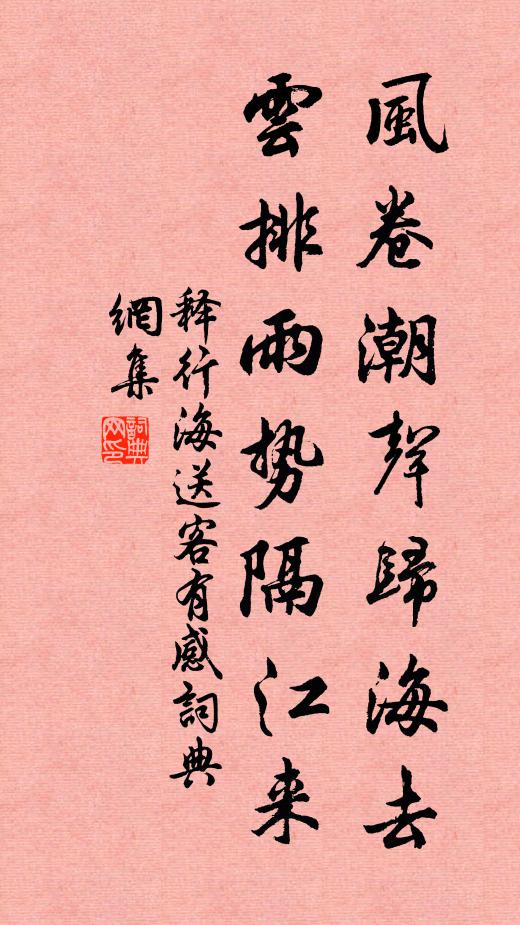 風卷潮聲歸海去
雲排雨勢隔江来
释行海送客有感詞典
網集
詞典
网印